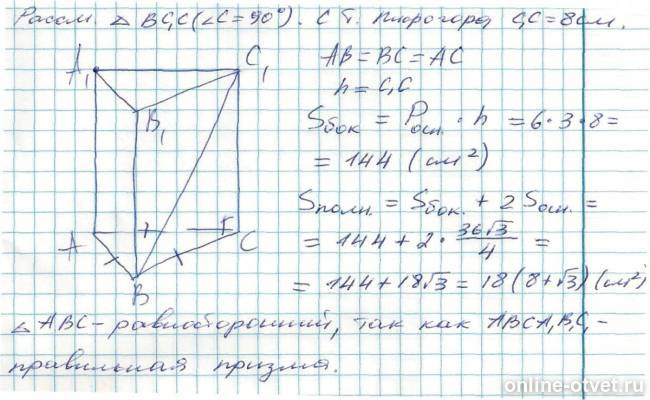 Рассм. △ BC₁C (∠C = 90°). С т. Пифагора C₁C = 8 см.
A₁
C₁
B₁
A
C
B
AB = BC = AC
h = C₁C
Sбок = Pосн. · h = 6 · 3 · 8 =
= 144 (см²)
Sполн. = Sбок. + 2 Sосн. =
= 144 + 2 · 36√3/4 =
= 144 + 18√3 = 18(8 + √3) (см²)
△ ABC – равносторонний, так как ABCA₁B₁C₁ –
правильная призма.
online-otvet.ru